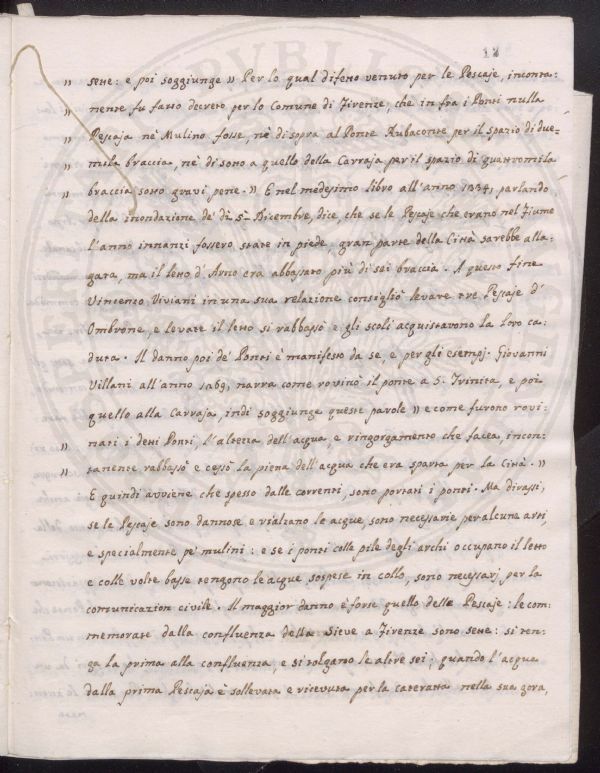 18
„ sette: e poi soggiunge „ Per lo qual difetto venuto per le Pescaje, inconta-
„ nente fu fatto decreto per lo Comune di Firenze, che in fra i Ponti nulla
„ Pescaja ne' Mulino fosse, nè di sopra al Ponte Rubaconte per il spazio di due-
„ mila braccia, nè di sotto a quello della Carraja per il spazio di quattromila
„ braccia sotto gravi pene. „ E nel medesimo libro all'anno 1334, parlando
della inondazione de' dì 5 Dicembre, dice, che se le Pescaje che erano nel Fiume
l'anno innanzi fossero state in piede, gran parte della Città sarebbe alla-
gata, ma il letto d'Arno era abbassato più di sei braccia. A questo fine
Vincenzo Viviani in una sua relazione consigliò levare tre Pescaje d'
Ombrone, e levate il letto si rabbassò e gli scoli acquistavono la loro ca-
duta. Il danno poi de' Ponti è manifesto da se, e per gli esempj. Giovanni
Villani all'anno 1269, narra come rovinò il ponte a S. Trinita, e poi
quello alla Carraja, indi soggiunge queste parole „ e come furono rovi-
„ nati i detti Ponti, l'altezza dell'acqua, e ringorgamento che facea, incon-
„ tanente rabbassò e cessò la piena dell'acqua che era sparta per la Città. „
E quindi avviene che spesso dalle correnti, sono portati i ponti. Ma dirassi,
se le Pescaje sono dannose e rialzano le acque, sono necessarie per alcune arti,
e specialmente pe' mulini: e se i ponti colle pile degli archi occupano il letto
e colle volte basse tengono le acque sospese in collo, sono necessarj per la
comunicazion civile. Il maggior danno è forse quello delle Pescaje: le com-
memorate dalla confluenza della Sieve a Firenze sono sette: si ten-
ga la prima alla confluenza, e si tolgano le altre sei; quando l'acqua
dalla prima Pescaja è sollevata e ricevuta per la cateratta nella sua gora,